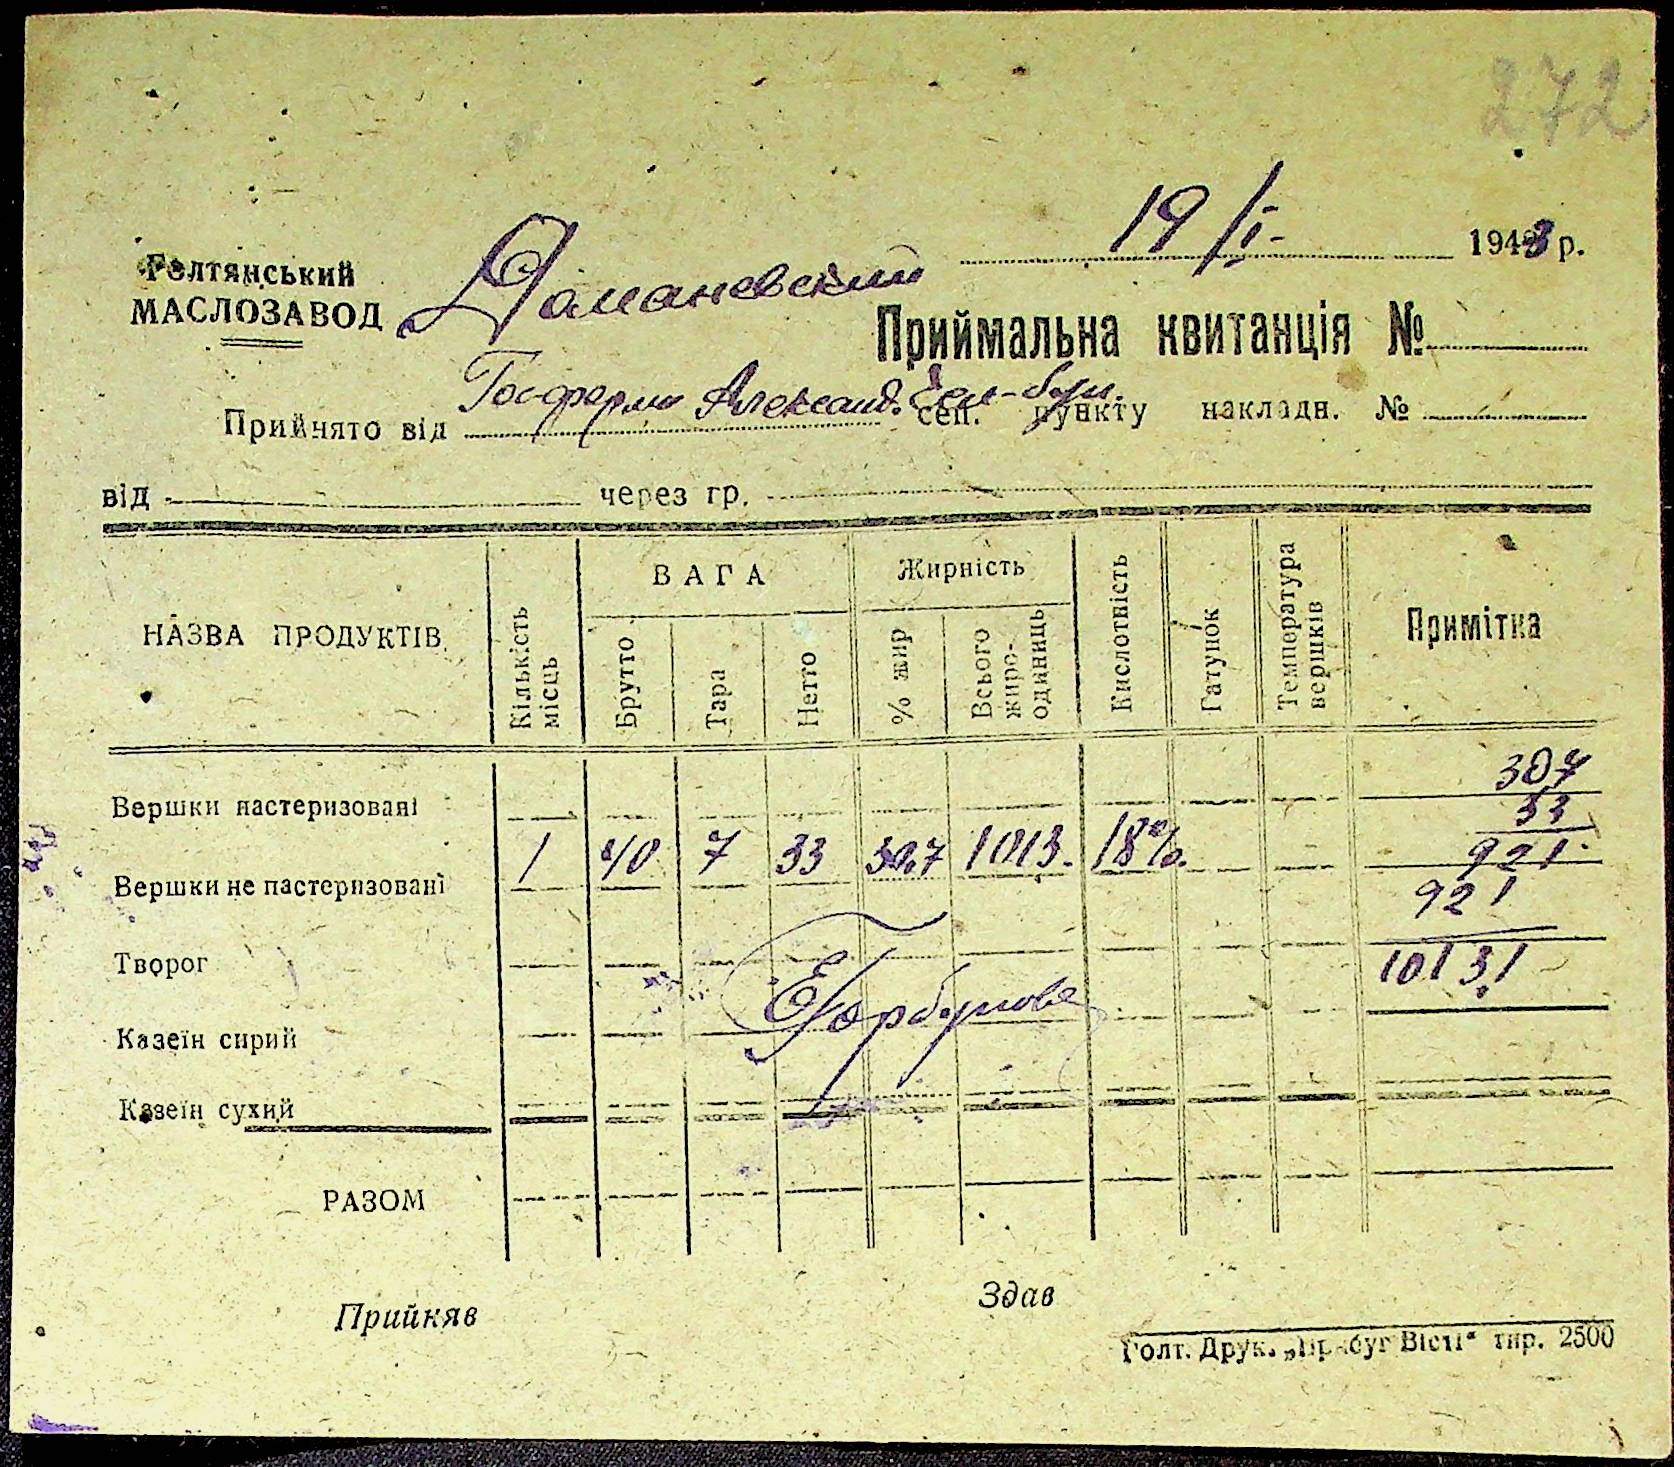 272
19/I- 1943 р.
Голтянський
МАСЛОЗАВОД Доманевский
Приймальна квитанція №
Госферми Александ.
Прийнято від сеп. пункту накладн. №
від через гр.
НАЗВА ПРОДУКТІВ Кількість місць ВАГА Жирність Кислотність Гатунок Температура вершків Примітка
Бруто Тара Нетто % жир Всього жиро-одиниць
307
Вершки пастеризовані
33
1 40 7 33 30,7 1013. 18%. 921
Вершки не пастеризовані
921
Творог
10131
Горбунова
Казеїн сирий
Казеїн сухий
РАЗОМ
Прийняв Здав
Голт. Друк. „Прибуг Вісті“ тир. 2500